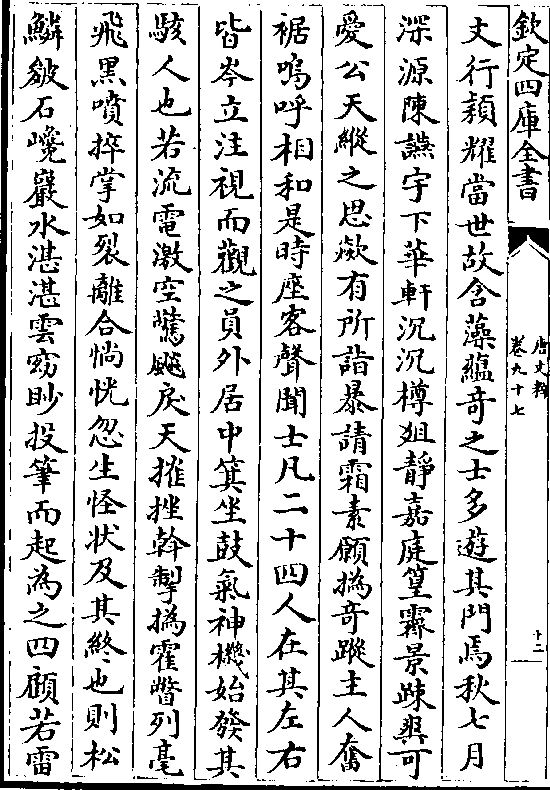 欽定四庫全書
唐文粹
卷九十七
十二
文行頴耀當世故含藻蘊奇之士多遊其門焉秋七月
深源陳讌宇下華軒沉沉樽爼靜嘉庭篁霽景踈爽可
愛公天縱之思歘有所詣暴請霜素願撝奇蹤主人奮
裾嗚呼相和是時座客聲聞士凡二十四人在其左右
皆岑立注視而觀之員外居中箕坐鼓氣神機始發其
駭人也若流電激空驚飈戾天摧挫斡掣撝霍瞥列毫
飛黒噴捽掌如裂離合惝恍忽生怪狀及其終也則松
鱗皴石巉巖水湛湛雲窈眇投筆而起為之四顧若雷